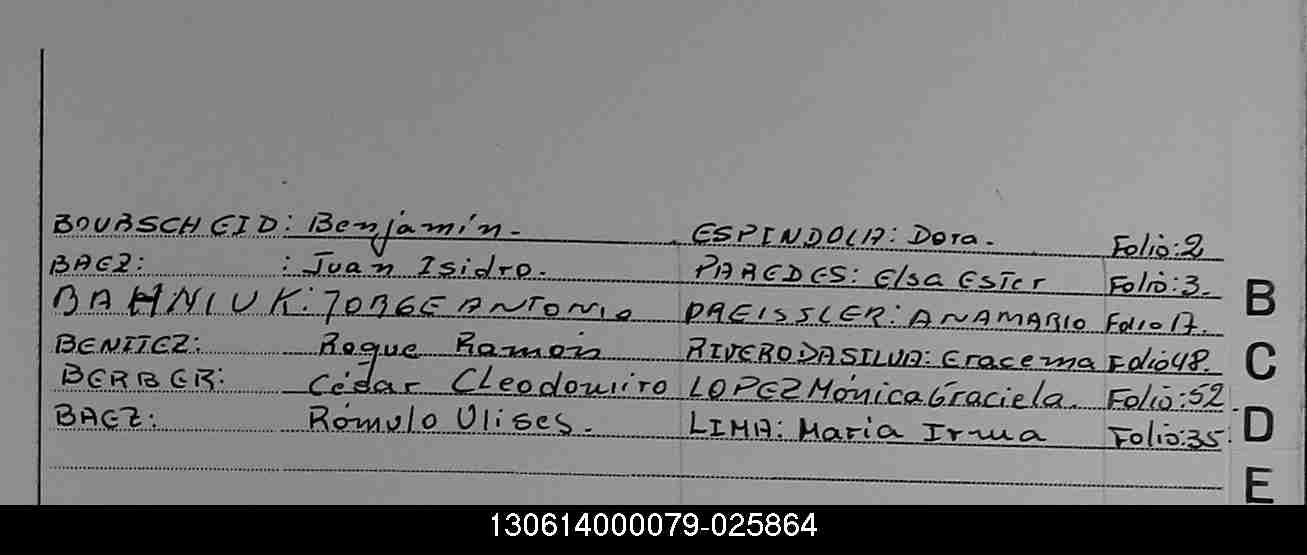 BOURSCHEID: Benjamín. ESPINDOLA: Dora. Folio:2
BAEZ: : Juan Isidro. PAREDES: Elsa Ester Folio:3.
BAHNIUK: JORGE ANTONIO PREISSLER: ANAMARIO Folio 17.
BENITEZ: Roque Ramón RIVERO DA SILVA: Eracema Folio 48.
BERBER: César Cleodomiro LOPEZ Mónica Graciela. Folio:52
BAEZ: Rómulo Ulises. LIMA: Maria Irma Folio:35.
B
C
D
E
130614000079-025864